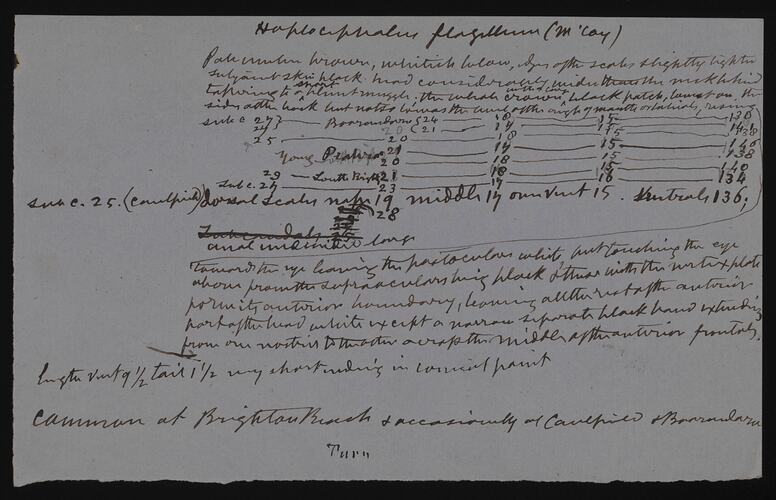 Hoplocephalus flagellum (McCoy)
Pale umber brown, whitish below, edges of the scales slightly lighter
subjacent skin black head considerably wider than the neck behind
tapering to a short blunt muzzle, the whole crown with a black patch, lowest on the
sides of the back but not so low as the level of the angle of mouth or labials, rising
sub c. 27 — Boroondara 24 — 18 — 15 — 136
20 (21 — 17 — 15 — 141
25 20 — 18 — 138
Young Prahran 21 — 17 — 15 — 140
20 — 18 — 15 — 138
29 — South 21 — 18 — 17 — 140
sub c. 27 23 — 17 — 16 — 134
sub c. 25. (Caulfield) dorsal scales nape 19 middle 17 over vent 15. Ventrals 136;
28
Subcaudals 25
anal undivided large
towards the eye leaving the preoculars white, but touching the eye
above from the supraoculars being black & these with the vertex plate
form its anterior boundary, leaving all the rest of the anterior
part of the head white except a narrow separate black band extending
from one nostril to the other across the middle of the anterior frontals.
Length vent 9 1/2 tail 1 1/2 very short ending in conical point
Common at Brighton Beach & occasionally at Caulfield & Boroondara
Turn